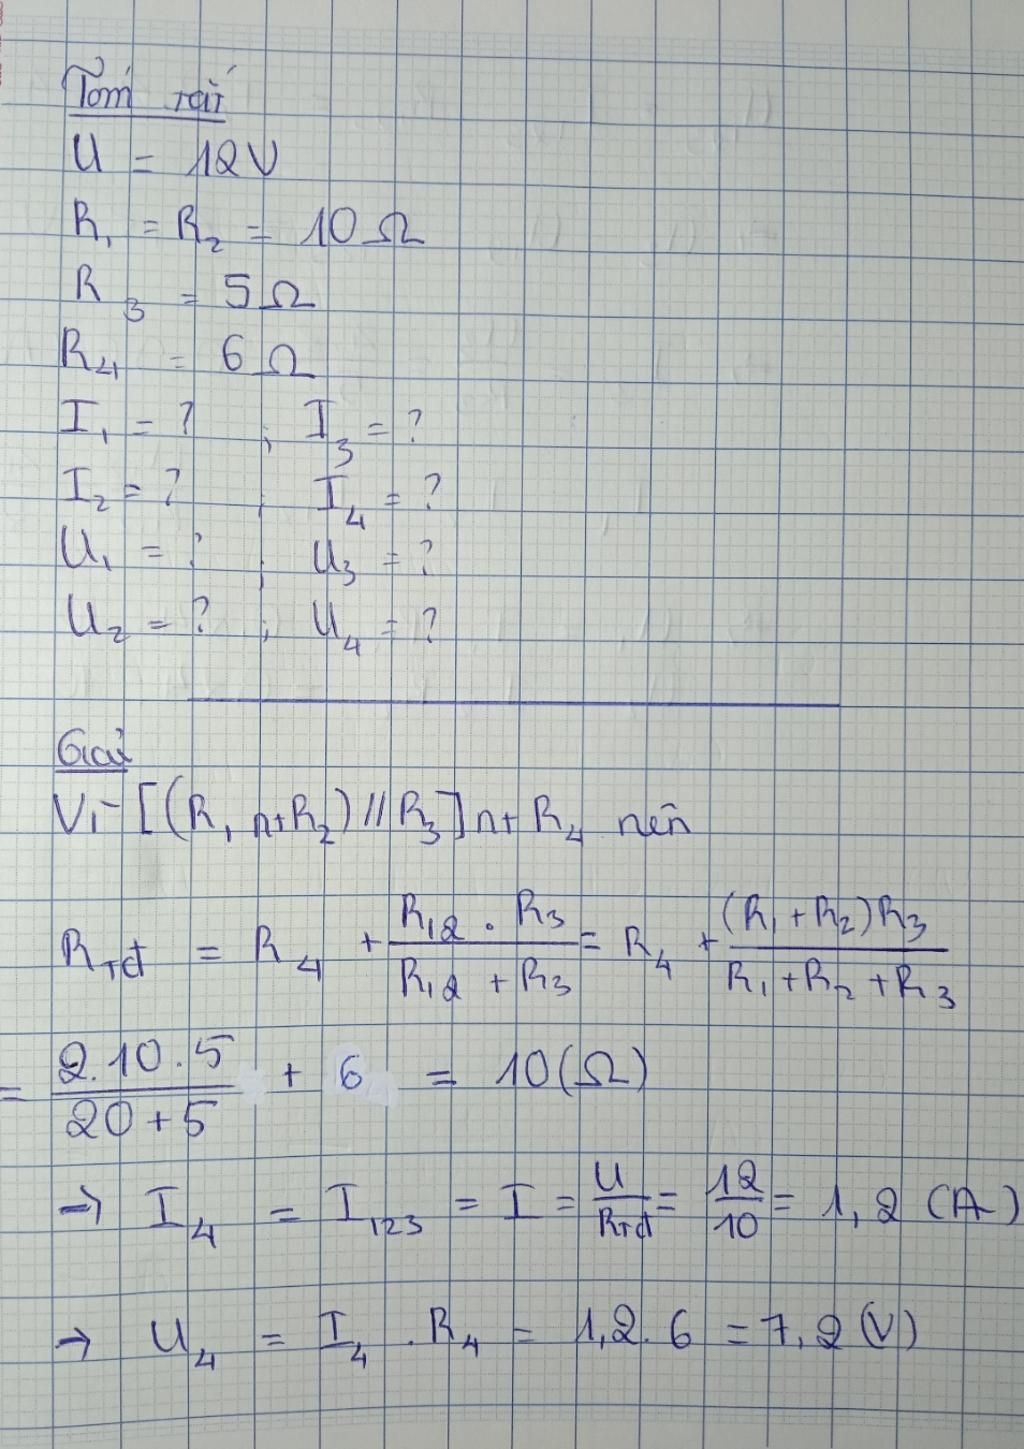 Tóm tắt
U = 12V
R₁ = R₂ = 10Ω
R₃ = 5Ω
R₄ = 6Ω
I₁ = ? ; I₃ = ?
I₂ = ? ; I₄ = ?
U₁ = ? ; U₃ = ?
U₂ = ? ; U₄ = ?
Giải
Vì [(R₁ nt R₂) // R₃] nt R₄ nên
Rtđ = R₄ + (R₁₂ . R₃)/(R₁₂ + R₃) = R₄ + ((R₁ + R₂)R₃)/(R₁ + R₂ + R₃)
= (2.10.5)/(20 + 5) + 6 = 10 (Ω)
→ I₄ = I₁₂₃ = I = U/Rtđ = 12/10 = 1,2 (A)
→ U₄ = I₄ . R₄ = 1,2 . 6 = 7,2 (V)